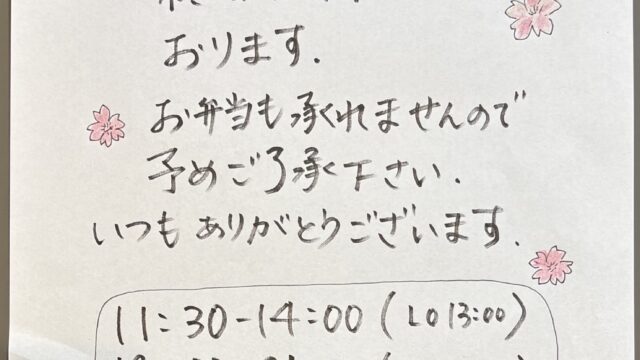 おります.
お弁当も承れませんので
予めご了承下さい.
いつもありがとうございます.
11:30-14:00 (LO 13:00)